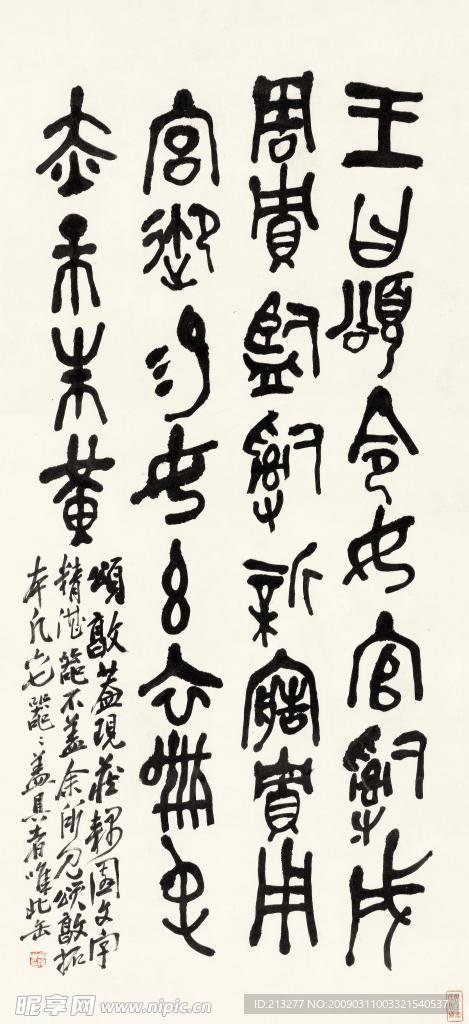 王曰頌令女官𤔲成
周貯監𤔲新造貯用
宮御易女玄衣黹屯
赤巿朱黃
頌敦蓋現藏耦園文字
精湛器不蓋余所見頌敦拓
本凡六七器々蓋具者唯此缶
昵享网 www.nipic.cn
ID:213277 NO:20090311003321540537